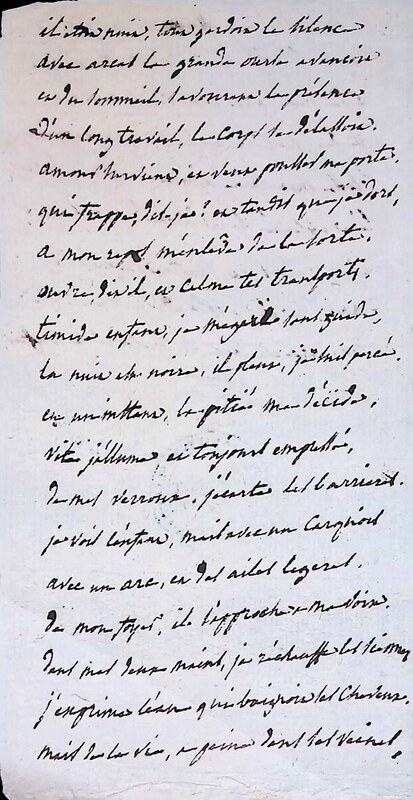 il était nuit, tout gardoit le silence
avec arcas la grande ourse avancoit
et du sommeil, savourant la présence
d'un long travail, le corps se délassoit.
amour survient, et veut pousser ma porte
qui frappe, dis-je? et tandis que je dors,
a mon repos m'enlève de la sorte.
ouvre, dit-il, et calme tes transports.
timide enfant, je m'égare sans guide,
la nuit est noire, il pleut, je suis percé.
en un instant, la pitié me décide,
vite j'allume et toujours empressé,
de mes verroux, j'écarte les barrieres.
je vois l'enfant, mais avec un Carquois
avec un arc, et des ailes legeres.
de mon foyer, il s'approche a ma voix.
dans mes deux mains, je réchauffe les siennes
j'exprime l'eau qui baignoit ses cheveux.
mais de la vie, a peine dans ses veines,